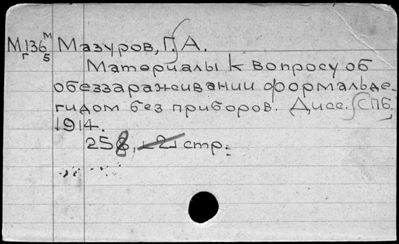 М136 м Мазуров, Г. А.
г 5 Материалы к вопросу об
обеззараживании формальде-
гидом без приборов. Дисс. СПб,
1914.
258, стр.